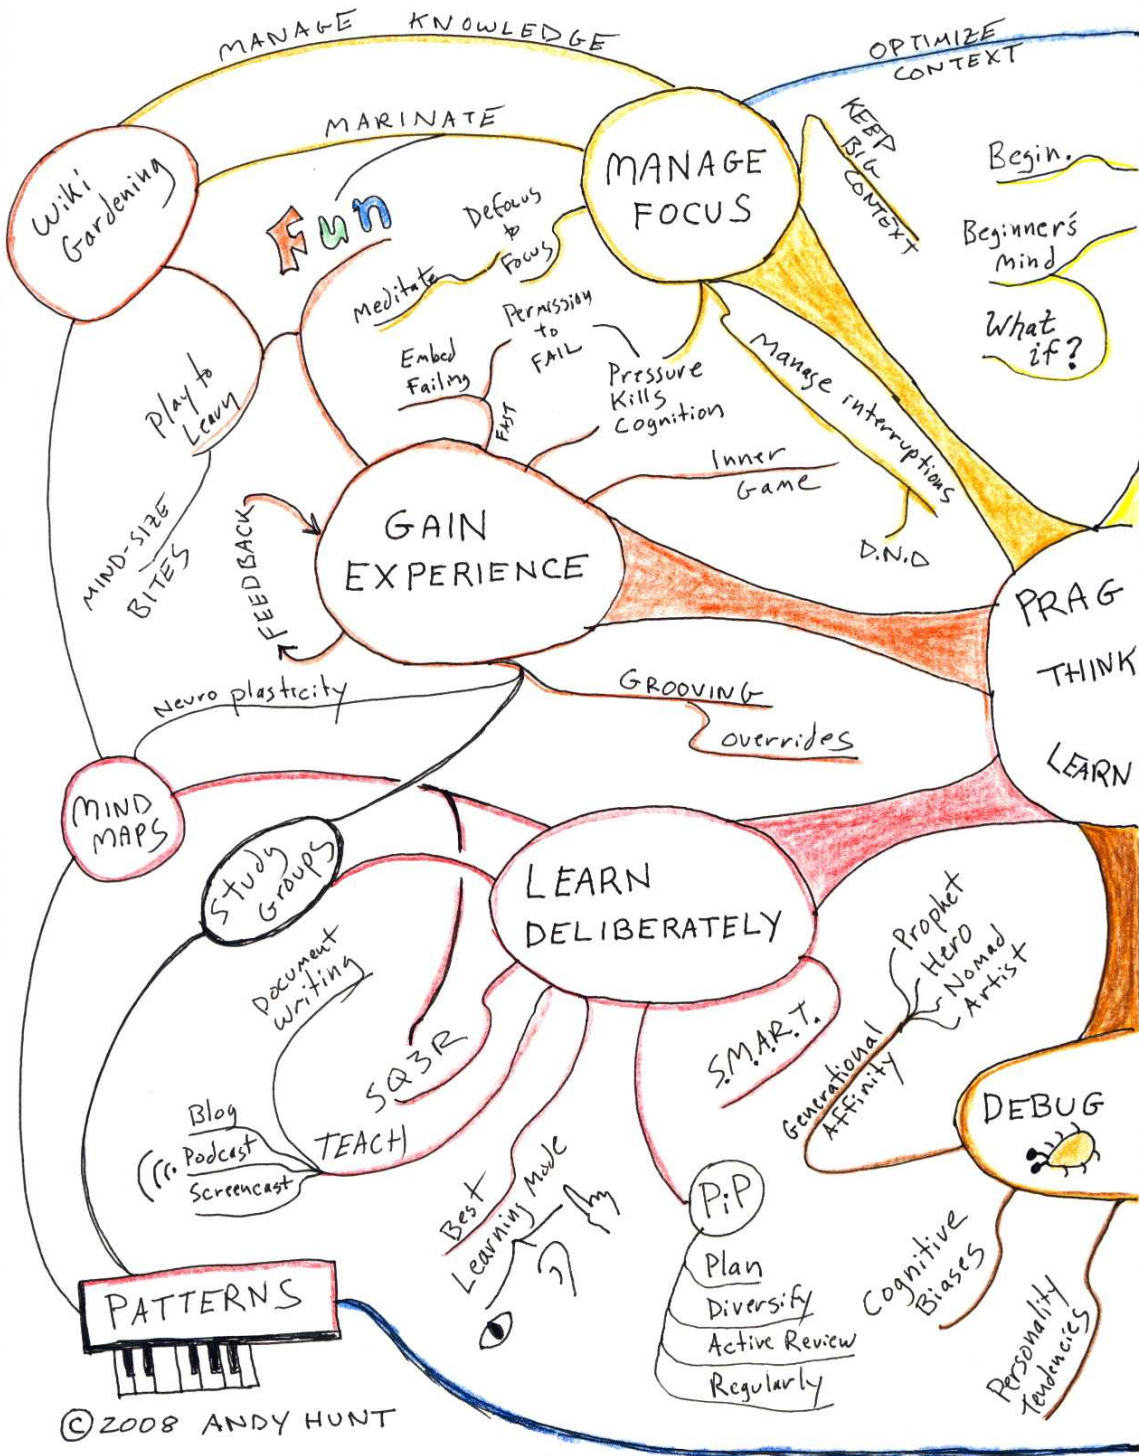 MANAGE KNOWLEDGE
OPTIMIZE
CONTEXT
MARINATE
Wiki
Gardening
MANAGE
FOCUS
KEEP
BIG
CONTEXT
Begin.
Beginner's
mind
What
if?
Fun
Defocus
to
Focus
Meditate
Permission
to
FAIL
Embed
Failing
FAST
Pressure
Kills
Cognition
Manage interruptions
D.N.D
Play to
Learn
MIND-SIZE
BITES
Inner
Game
FEEDBACK
GAIN
EXPERIENCE
PRAG
THINK
LEARN
Neuro plasticity
GROOVING
overrides
MIND
MAPS
Study
Groups
LEARN
DELIBERATELY
Document
Writing
SQ3R
TEACH
Blog
Podcast
Screencast
Best
Learning Mode
S.M.A.R.T.
PiP
Plan
Diversify
Active Review
Regularly
Prophet
Hero
Nomad
Artist
Generational
Affinity
DEBUG
Cognitive
Biases
Personality
Tendencies
PATTERNS
© 2008 ANDY HUNT